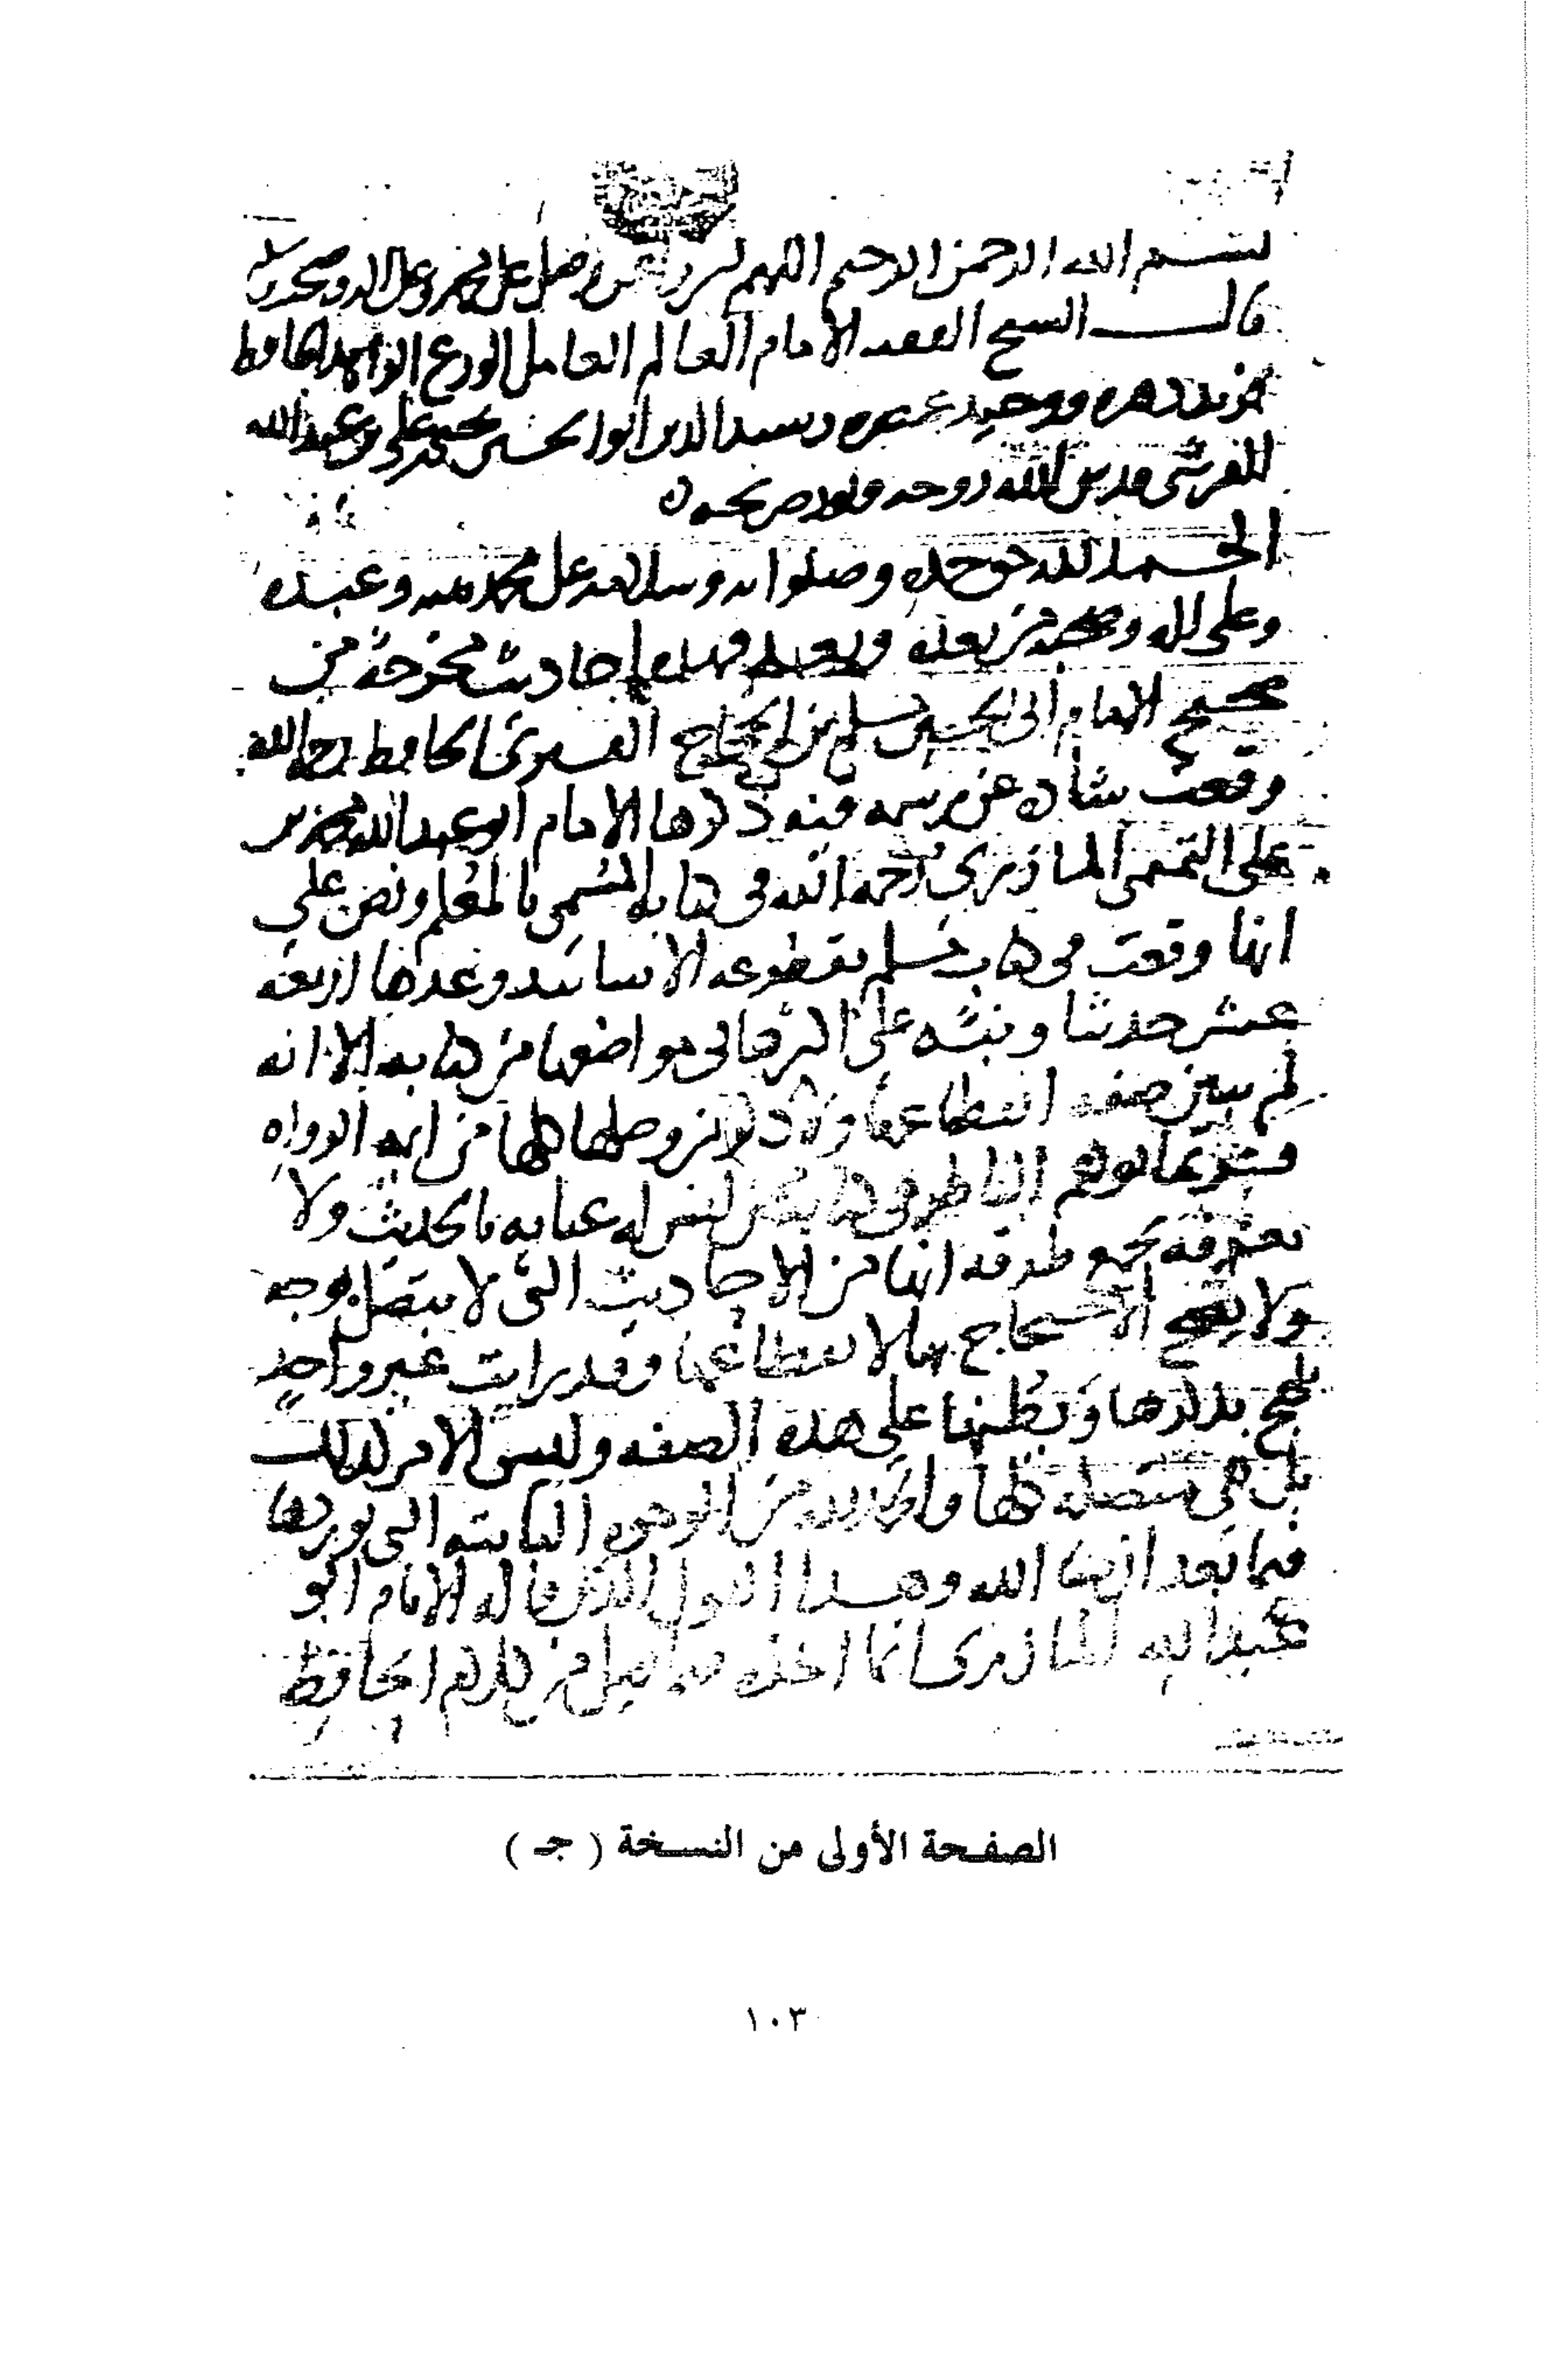 بسم الله الرحمن الرحيم اللهم يسر وصل على محمد وعلى اله وصحبه وسلم
قال الشيخ الفقيه الامام العالم العامل الورع الحافظ
فريد دهره ووحيد عصره رشيد الدين ابو الحسين يحيى بن علي بن عبد الله
القرشي قدس الله روحه ونور ضريحه
الحمد لله حق حمده وصلواته وسلامه على محمد نبيه وعبده
وعلى اله وصحبه من بعده وبعد فهذه احاديث مخرجة من
صحيح الامام ابي الحسين مسلم بن الحجاج القشيري الحافظ رحمه الله
وقعت شاذة عن رسمه فيه ذكرها الامام ابو عبد الله محمد بن
علي التميمي المازري رحمه الله في كتابه المسمى بالمعلم ونص على
انها وقعت في كتاب مسلم مقطوعة الاسانيد وعدها اربعة
عشر حديثا ونبه على اكثرها في مواضعها من كتابه الا انه
لم يبين صفة انقطاعها ولا ذكر من وصلها كلها من ايمة الرواه
فربما توهم الناظر في كتابه ممن ليس له عنايه بالحديث ولا
معرفة بجمع طرقه انها من الاحاديث التي لا يتصل بوجه
ولا يصح الاحتجاج بها لانقطاعها وقد رايت غير واحد
يلهج بذكرها ويظنها على هذه الصفه وليس الامر كذلك
بل هي متصلة كلها والحمد لله من الوجوه الثابتة التي نوردها
فيما بعد ان شا الله وهذا القول الذي قاله الامام ابو
عبد الله المازري انما اخذه فيما قيل من كلام الحافظ
الصفحة الأولى من النسخة ( جـ )
١٠٣